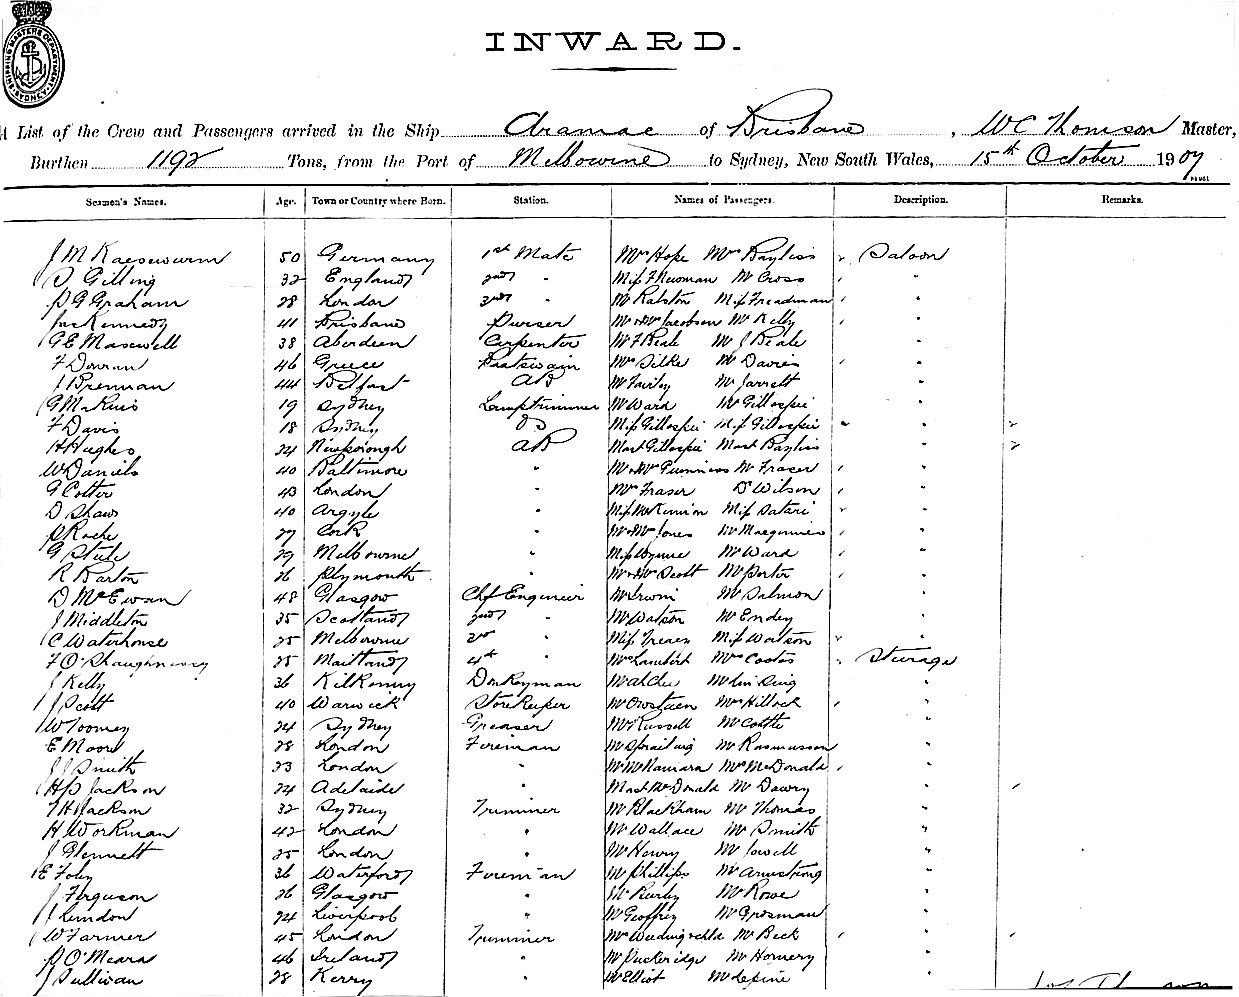 SHIPPING MASTERS DEPARTMENT SYDNEY
INWARD.
A List of the Crew and Passengers arrived in the Ship Aramac of Brisbane, W C Thomson Master,
Burthen 1192 Tons, from the Port of Melbourne to Sydney, New South Wales, 15th October 1907
Seamen's Names. Age. Town or Country where Born. Station. Names of Passengers. Description. Remarks.
J M Kaesewurm 50 Germany 1st Mate Mrs Hope Mrs Bayliss Saloon
S Gilling 32 England 2nd " Miss F Newman Mr Cross "
P G Graham 28 London 3rd " Mr Ralston Miss Freadman "
Jas Kennedy 41 Brisbane Purser Mr & Mrs Jacobson Mr Kelly "
G E Maxwell 38 Aberdeen Carpenter Mr F Beale Mr J Beale "
F Dowran 46 Greece Boatswain Mrs Silke Mr Davies "
J Brennan 44 Belfast AB Mr Fairley Mr Jarrett "
G McKinis 19 Sydney Lamptrimmer Mr Ward Mr Gillespie "
F Davis 18 Sydney Do Miss Gillespie Miss Gillespie "
H Hughes 24 Newborough AB Mast Gillespie Mast Bayliss "
W Daniels 40 Baltimore " Mr & Mrs Guinness Mr Fraser "
G Cotter 43 London " Mrs Fraser Dr Wilson "
D Shaw 40 Argyle " Miss McKinnon Miss "
P Roche 27 Cork " Mr & Mrs Jones Mr Macginnis "
G Steele 29 Melbourne " Miss Wynne Mr Ward "
R Barton 26 Plymouth " Mr & Mrs Scott Mr Porter "
D McEwan 48 Glasgow Chf Engineer Mr Irwin Mr Salmon "
J Middleton 35 Scotland 2nd " Mr Watson Mr Endey "
C Waterhouse 25 Melbourne 3rd " Miss Treacy Miss Watson "
F O'Shaughnessy 25 Maitland 4th " Mrs Lambert Mrs Coates Steerage
J Kelly 36 Kilkenny Donkeyman Mr Ah Chee Mr "
J Scott 40 Warwick Storekeeper Mr Mrs Hillock "
W Toomey 24 Sydney Greaser Mr Russell Mr "
E Moore 28 London Fireman Mr Mr Rasmusson "
J J Smith 23 London " Mr McNamara Mrs McDonald "
H P Jackson 24 Adelaide " Mast McDonald Mr Dowry "
T H Jackson 32 Sydney Trimmer Mr Blackham Mr Thomas "
H Workman 42 London " Mr Wallace Mr Smith "
J Glennett 25 London " Mr Henry Mr Jowell "
E Foley 36 Waterford Fireman Mr Phillips Mr Armstrong "
J Ferguson 26 Glasgow " Mr Mr Rowe "
J Lemdon 24 Liverpool " Mr Geoffrey Mr Grosman "
W Farmer 45 London Trimmer Mrs Mr Beck "
P O'Meara 46 Ireland " Mr Puckeridge Mr Hornery "
J Sullivan 28 Kerry " Mr Elliot Mr Lepine "